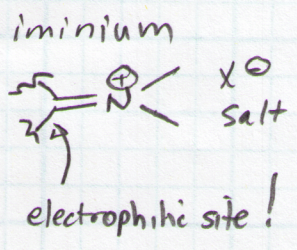 iminium
⊕
N
X ⊖
salt
electrophilic site!